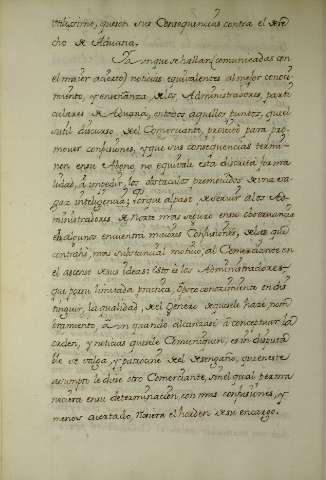 utilissimo, que son sus Consequencias contra el dere
cho de Aduana.
Ya aunque se hallan comunicadas con
el maior acierto noticias equivalentes al mejor conoci
miento, y enseñanza, de los Administradores, parti
culares de Aduana, en todos aquellos puntos, que el
sutil discurso del Comerciante,proietó para pro
mover confusiones, y que sus consequencias termi
nen en su Abono, no equivale esta discreta forma
lidad, á impedir, los obstaculos promovidos de una sa
gaz inteligencia; Porque al paso de servir a los Ad
ministradores de Norte mas seguro en su Governacion
en algunos encuentra maiores Confusiones, de las que
contrahe, mas substancial motivo, al Comerciante en
el ascenso de sus ideas: Esto es los Administradores
que por su limitada practica, u poco conocimiento en dis
tinguir, la qualidad, del Genero de que se hace nom
bramiento, aun quando alcanzase á conceptuar la
orden, y noticias que se le Comuniquen, es indisputa
ble se valga, y patrocine del desengaño, que en este
asumpto le diese otro Comerciante, sin el qual perma
neciera en su determinacion, con mas confusiones, y
menos acertado,